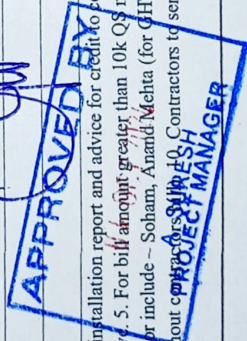 APPROVED BY
nstallation report and advice for credit to c
5. For bill amount greater than 10k QS
or include ~ Soham, Anand Mehta (for GHT
hout contractors Contractors to ser
PROJECT MANAGER